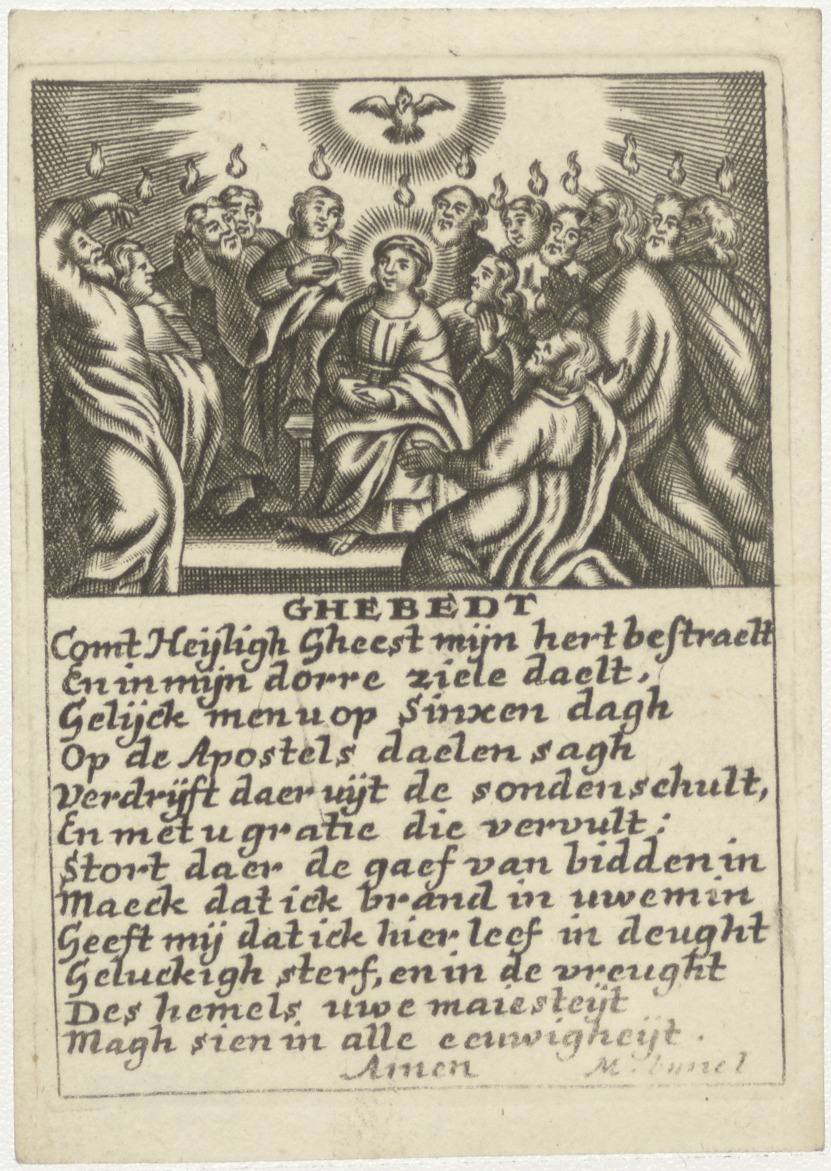 GHEBEDT
Comt Heijligh Gheest mijn hert bestraelt
En in mijn dorre ziele daelt,
Gelijck men u op Sinxen dagh
Op de Apostels daelen sagh
Verdrijft daer uijt de sonden schult,
En met u gratie die vervult;
Stort daer de gaef van bidden in
Maeck dat ick brand in uwe min
Geeft mij dat ick hier leef in deught
Geluckigh sterf, en in de vreught
Des hemels uwe maiesteijt
Magh sien in alle eeuwigheijt.
Amen